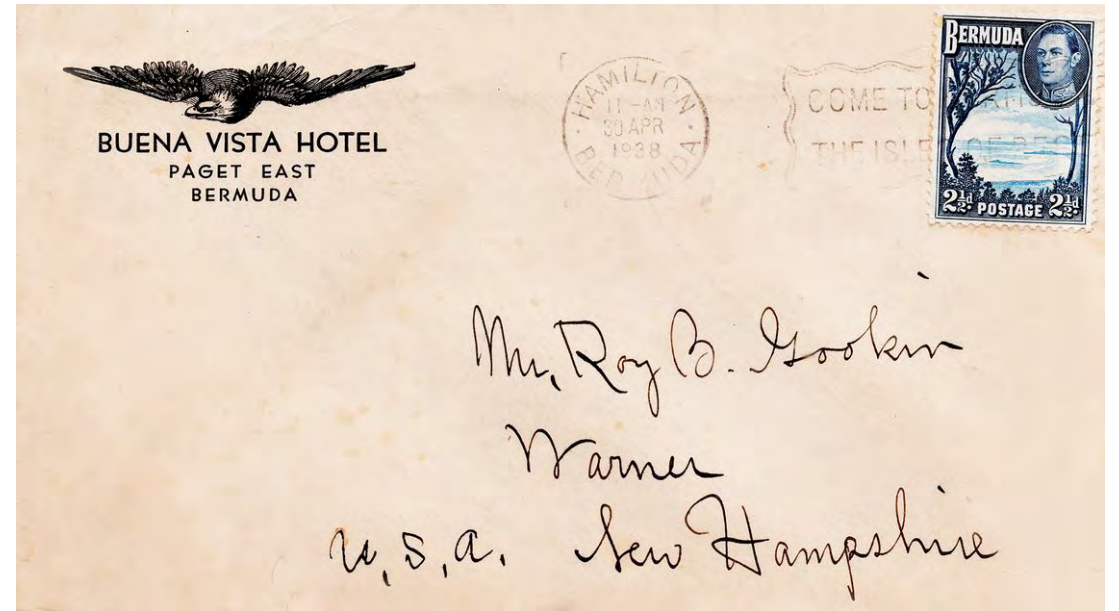 BUENA VISTA HOTEL
PAGET EAST
BERMUDA
HAMILTON
11-AM
30 APR
1938
BERMUDA
COME TO
THE ISLES OF REST
BERMUDA
2½d POSTAGE 2½d
Mr. Roy B. Gookin
Warner
U.S.A. New Hampshire